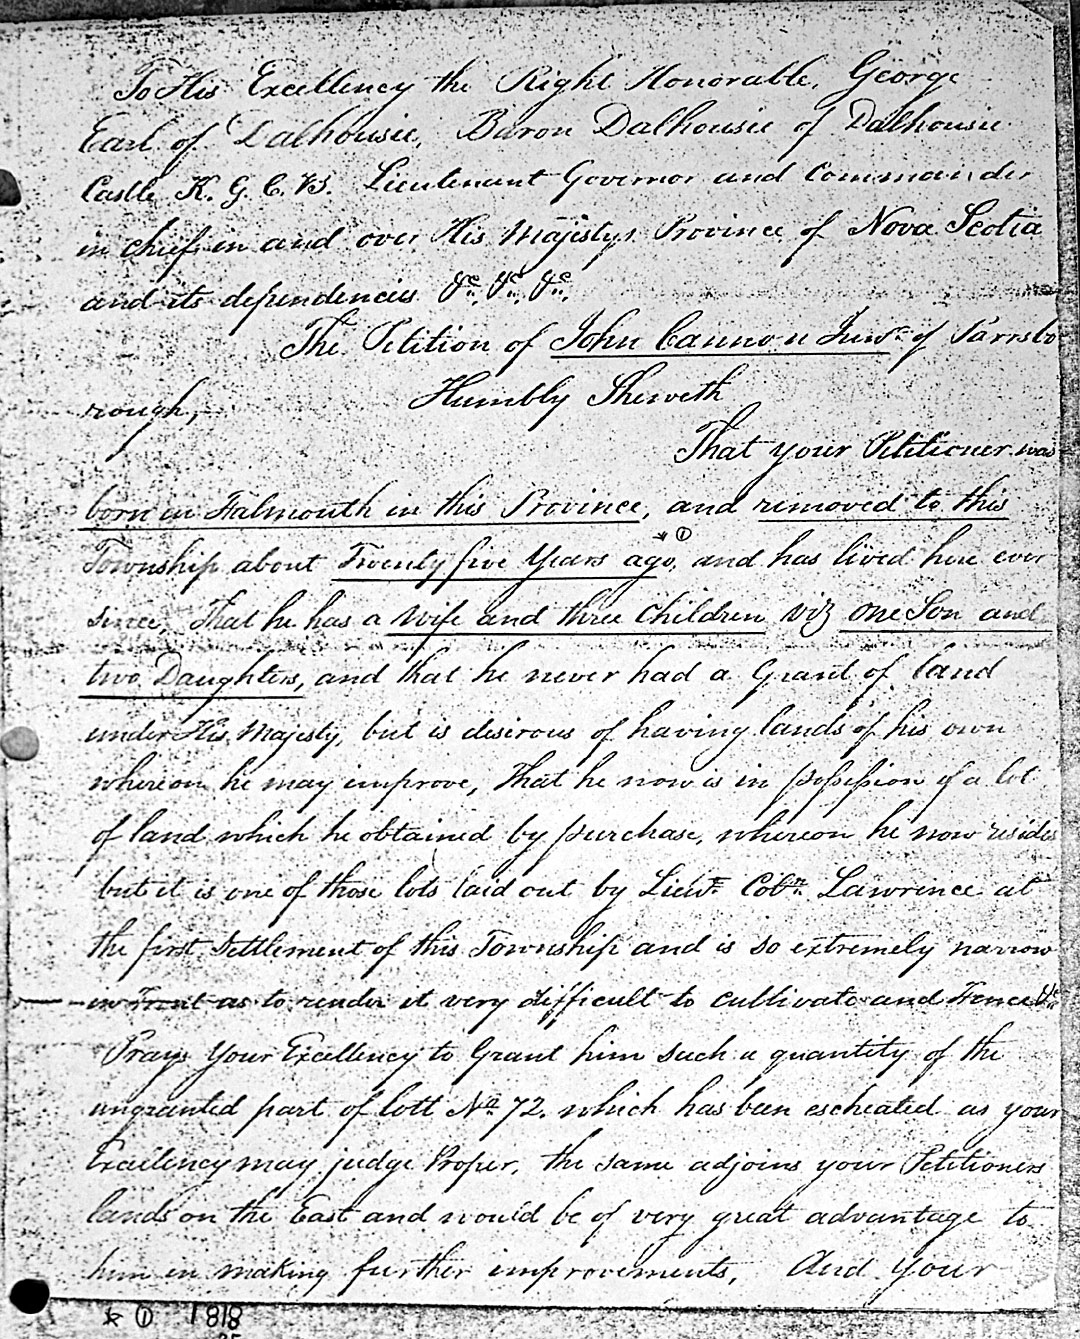 To His Excellency the Right Honorable, George
Earl of Dalhousie, Baron Dalhousie of Dalhousie
Castle K. G. C. B. Lieutenant Governor and Commander
in chief in and over His Majestys Province of Nova Scotia
and its dependencies &c. &c. &c.
The Petition of John Cannon Junr. of Parrsbo
rough,
Humbly Sheweth
That your Petitioner was
born in Falmouth in this Province, and removed to this
* ①
Township about Twenty five Years ago, and has lived here ever
since, That he has a Wife and three Children Viz one Son and
two Daughters, and that he never had a Grant of land
under His Majesty, but is desirous of having lands of his own
whereon he may improve, That he now is in possession of a lot
of land which he obtained by purchase, whereon he now resides
but it is one of those lots laid out by Lieut. Coln. Lawrence at
the first Settlement of this Township and is so extremely narrow
in Front as to render it very difficult to cultivate and Fence &c
Prays Your Excellency to Grant him such a quantity of the
ungranted part of lott No. 72. which has been escheated as your
Excellency may judge Proper, the same adjoins your Petitioners
lands on the East and would be of very great advantage to
him in making further improvements, And your
* ① 1818
25